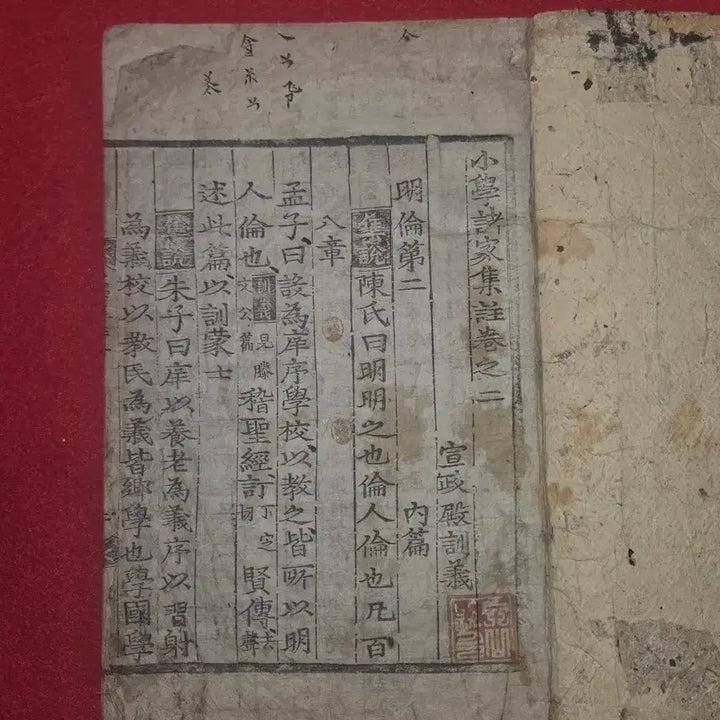 小學諸家集註卷之二
宣政殿訓義
明倫第二 內篇
集說 陳氏曰明明之也倫人倫也凡百
八章
孟子曰設為庠序學校以敎之皆所以明
人倫也 訓義 見滕文公篇 稽聖經訂 丁定切 賢傳 去聲
述此篇以訓蒙士
集說 朱子曰庠以養老為義序以習射
為義校以敎民為義皆鄉學也學國學